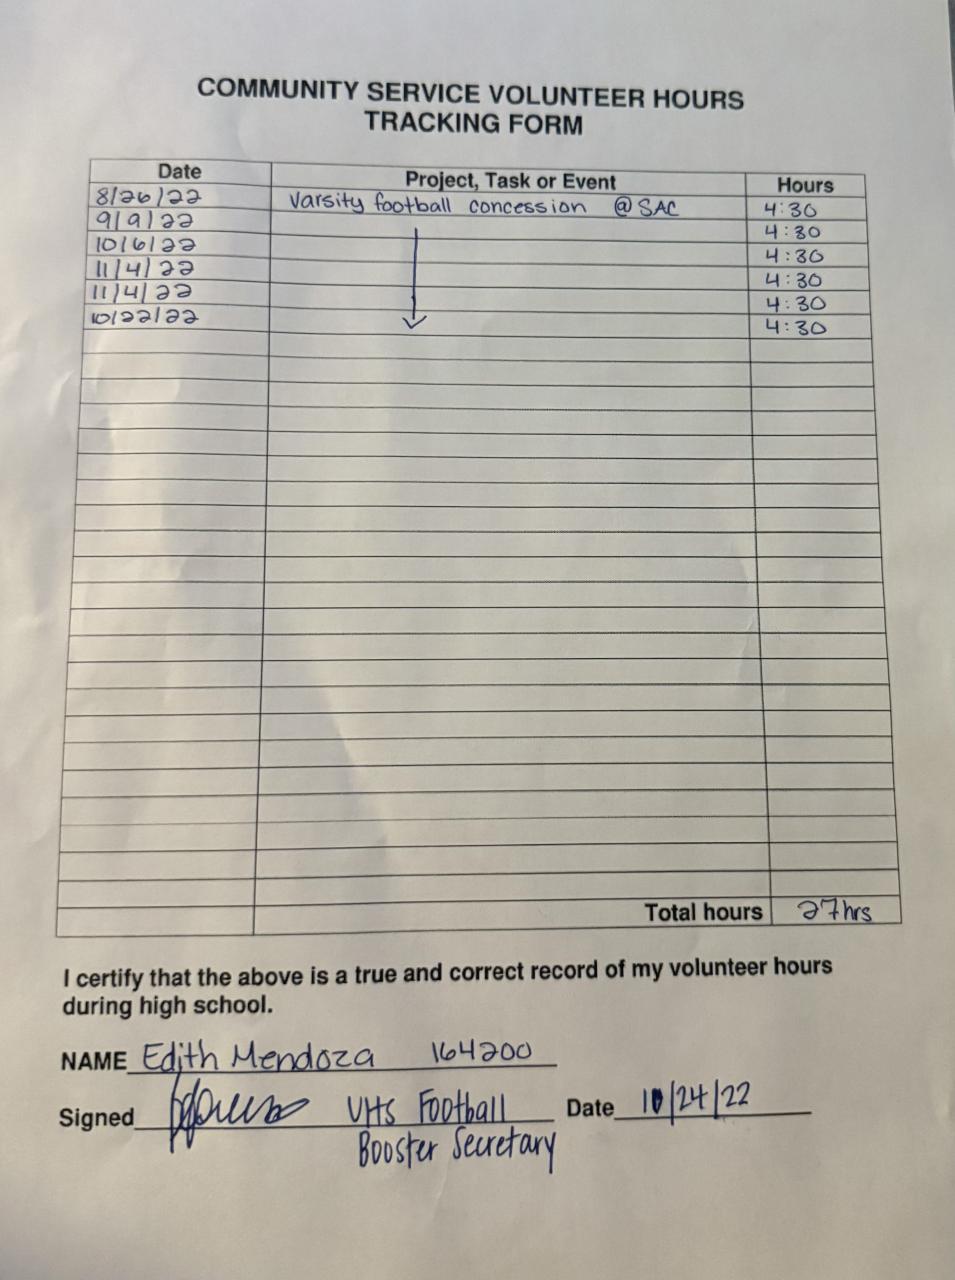 COMMUNITY SERVICE VOLUNTEER HOURS
TRACKING FORM
Date Project, Task or Event Hours
8/26/22 Varsity football concession @ SAC 4:30
9/9/22 4:30
10/6/22 4:30
11/4/22 4:30
11/4/22 4:30
10/22/22 4:30
Total hours 27hrs
I certify that the above is a true and correct record of my volunteer hours
during high school.
NAME Edith Mendoza 164200
Signed VHS Football Date 10/24/22
Booster Secretary